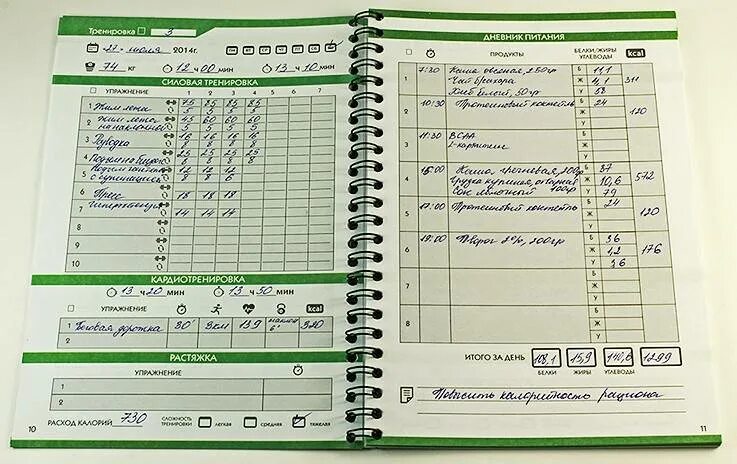 Тренировка 3
27 июля 2014г. ПН ВТ СР ЧТ ПТ СБ
74 кг 12 ч 00 мин 13 ч 10 мин
СИЛОВАЯ ТРЕНИРОВКА
УПРАЖНЕНИЕ 1 2 3 4 5 6 7
1 Жим лежа 75 85 85 85
5 5 5 5
2 Жим лежа на наклонной 45 60 60 60
5 5 5 5
3 16 16 16 16
8 8 8 8
4 25 25 25 25
8 8 8 8
5 12 12 12
8 8 6
6 Пресс
18 18 18
7
14 14 14
8
9
10
КАРДИОТРЕНИРОВКА
13 ч 20 мин 13 ч 50 мин
УПРАЖНЕНИЕ kcal
1 Беговая дорожка 30' 3км 139 наклон 6° 320
2
РАСТЯЖКА
УПРАЖНЕНИЕ
1
2
РАСХОД КАЛОРИЙ 730 СЛОЖНОСТЬ ТРЕНИРОВКИ легкая средняя тяжелая
10
ДНЕВНИК ПИТАНИЯ
ПРОДУКТЫ БЕЛКИ/ЖИРЫ УГЛЕВОДЫ kcal
1 7:30 Каша овсяная, 250гр Б 11,1
Чай без сахара Ж 4,1 311
Хлеб белый, 50гр У 58
2 10:30 Протеиновый коктейль Б 24
Ж 120
У
3 11:30 BCAA Б
L-карнитин Ж
У
4 15:00 Каша гречневая, 200гр Б 37
грудка куриная, отварная 100гр Ж 10,6 572
Сок У 79
5 17:00 Протеиновый коктейль Б 24
Ж 120
У
6 19:00 Творог 2%, 200гр Б 36
Ж 1,2 176
У 3,6
7 Б
Ж
У
8 Б
Ж
У
ИТОГО ЗА ДЕНЬ 108,1 15,9 140,6 1299
БЕЛКИ ЖИРЫ УГЛЕВОДЫ
Повысить калорийность рациона
11